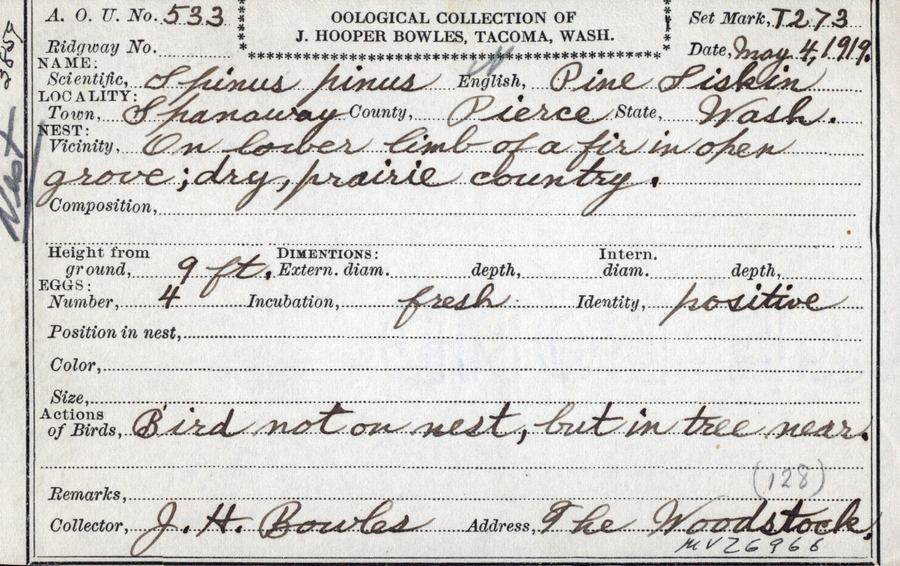 A. O. U. No. 533
OOLOGICAL COLLECTION OF
J. HOOPER BOWLES, TACOMA, WASH.
Set Mark, T273
Ridgway No.
Date, May 4, 1919.
NAME:
Scientific, Spinus pinus English, Pine Siskin
LOCALITY:
Town, Spanaway County, Pierce State, Wash.
NEST:
Vicinity, On lower limb of a fir in open
grove; dry, prairie country.
Composition,
Height from ground, 9 ft. DIMENTIONS: Extern. diam. depth, Intern. diam. depth,
EGGS:
Number, 4 Incubation, fresh Identity, positive
Position in nest,
Color,
Size,
Actions of Birds, Bird not on nest, but in tree near.
(128)
Remarks,
Collector, J. H. Bowles Address, The Woodstock,
MVZ6966
Nest